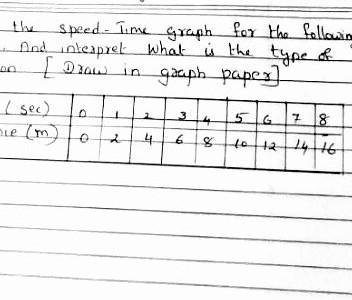 the speed-Time graph for the following
. And interpret what is the type of
on [ Draw in graph paper]
(sec) 0 1 2 3 4 5 6 7 8
(m) 0 2 4 6 8 10 12 14 16